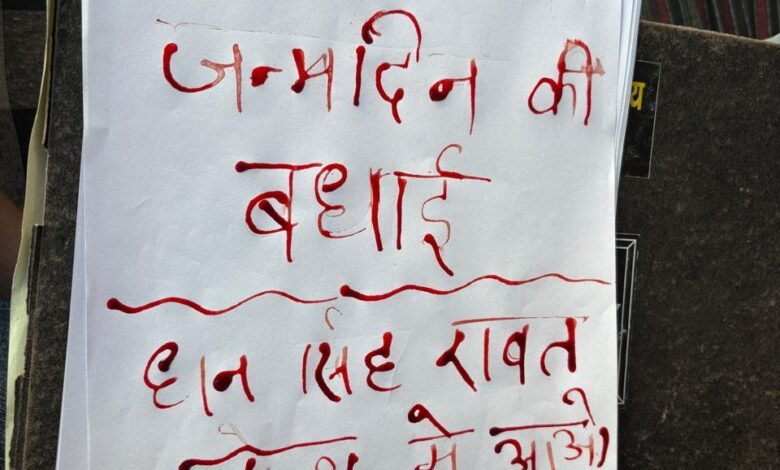 जन्मदिन की
बधाई
धन सिंह रावत
मे आओ